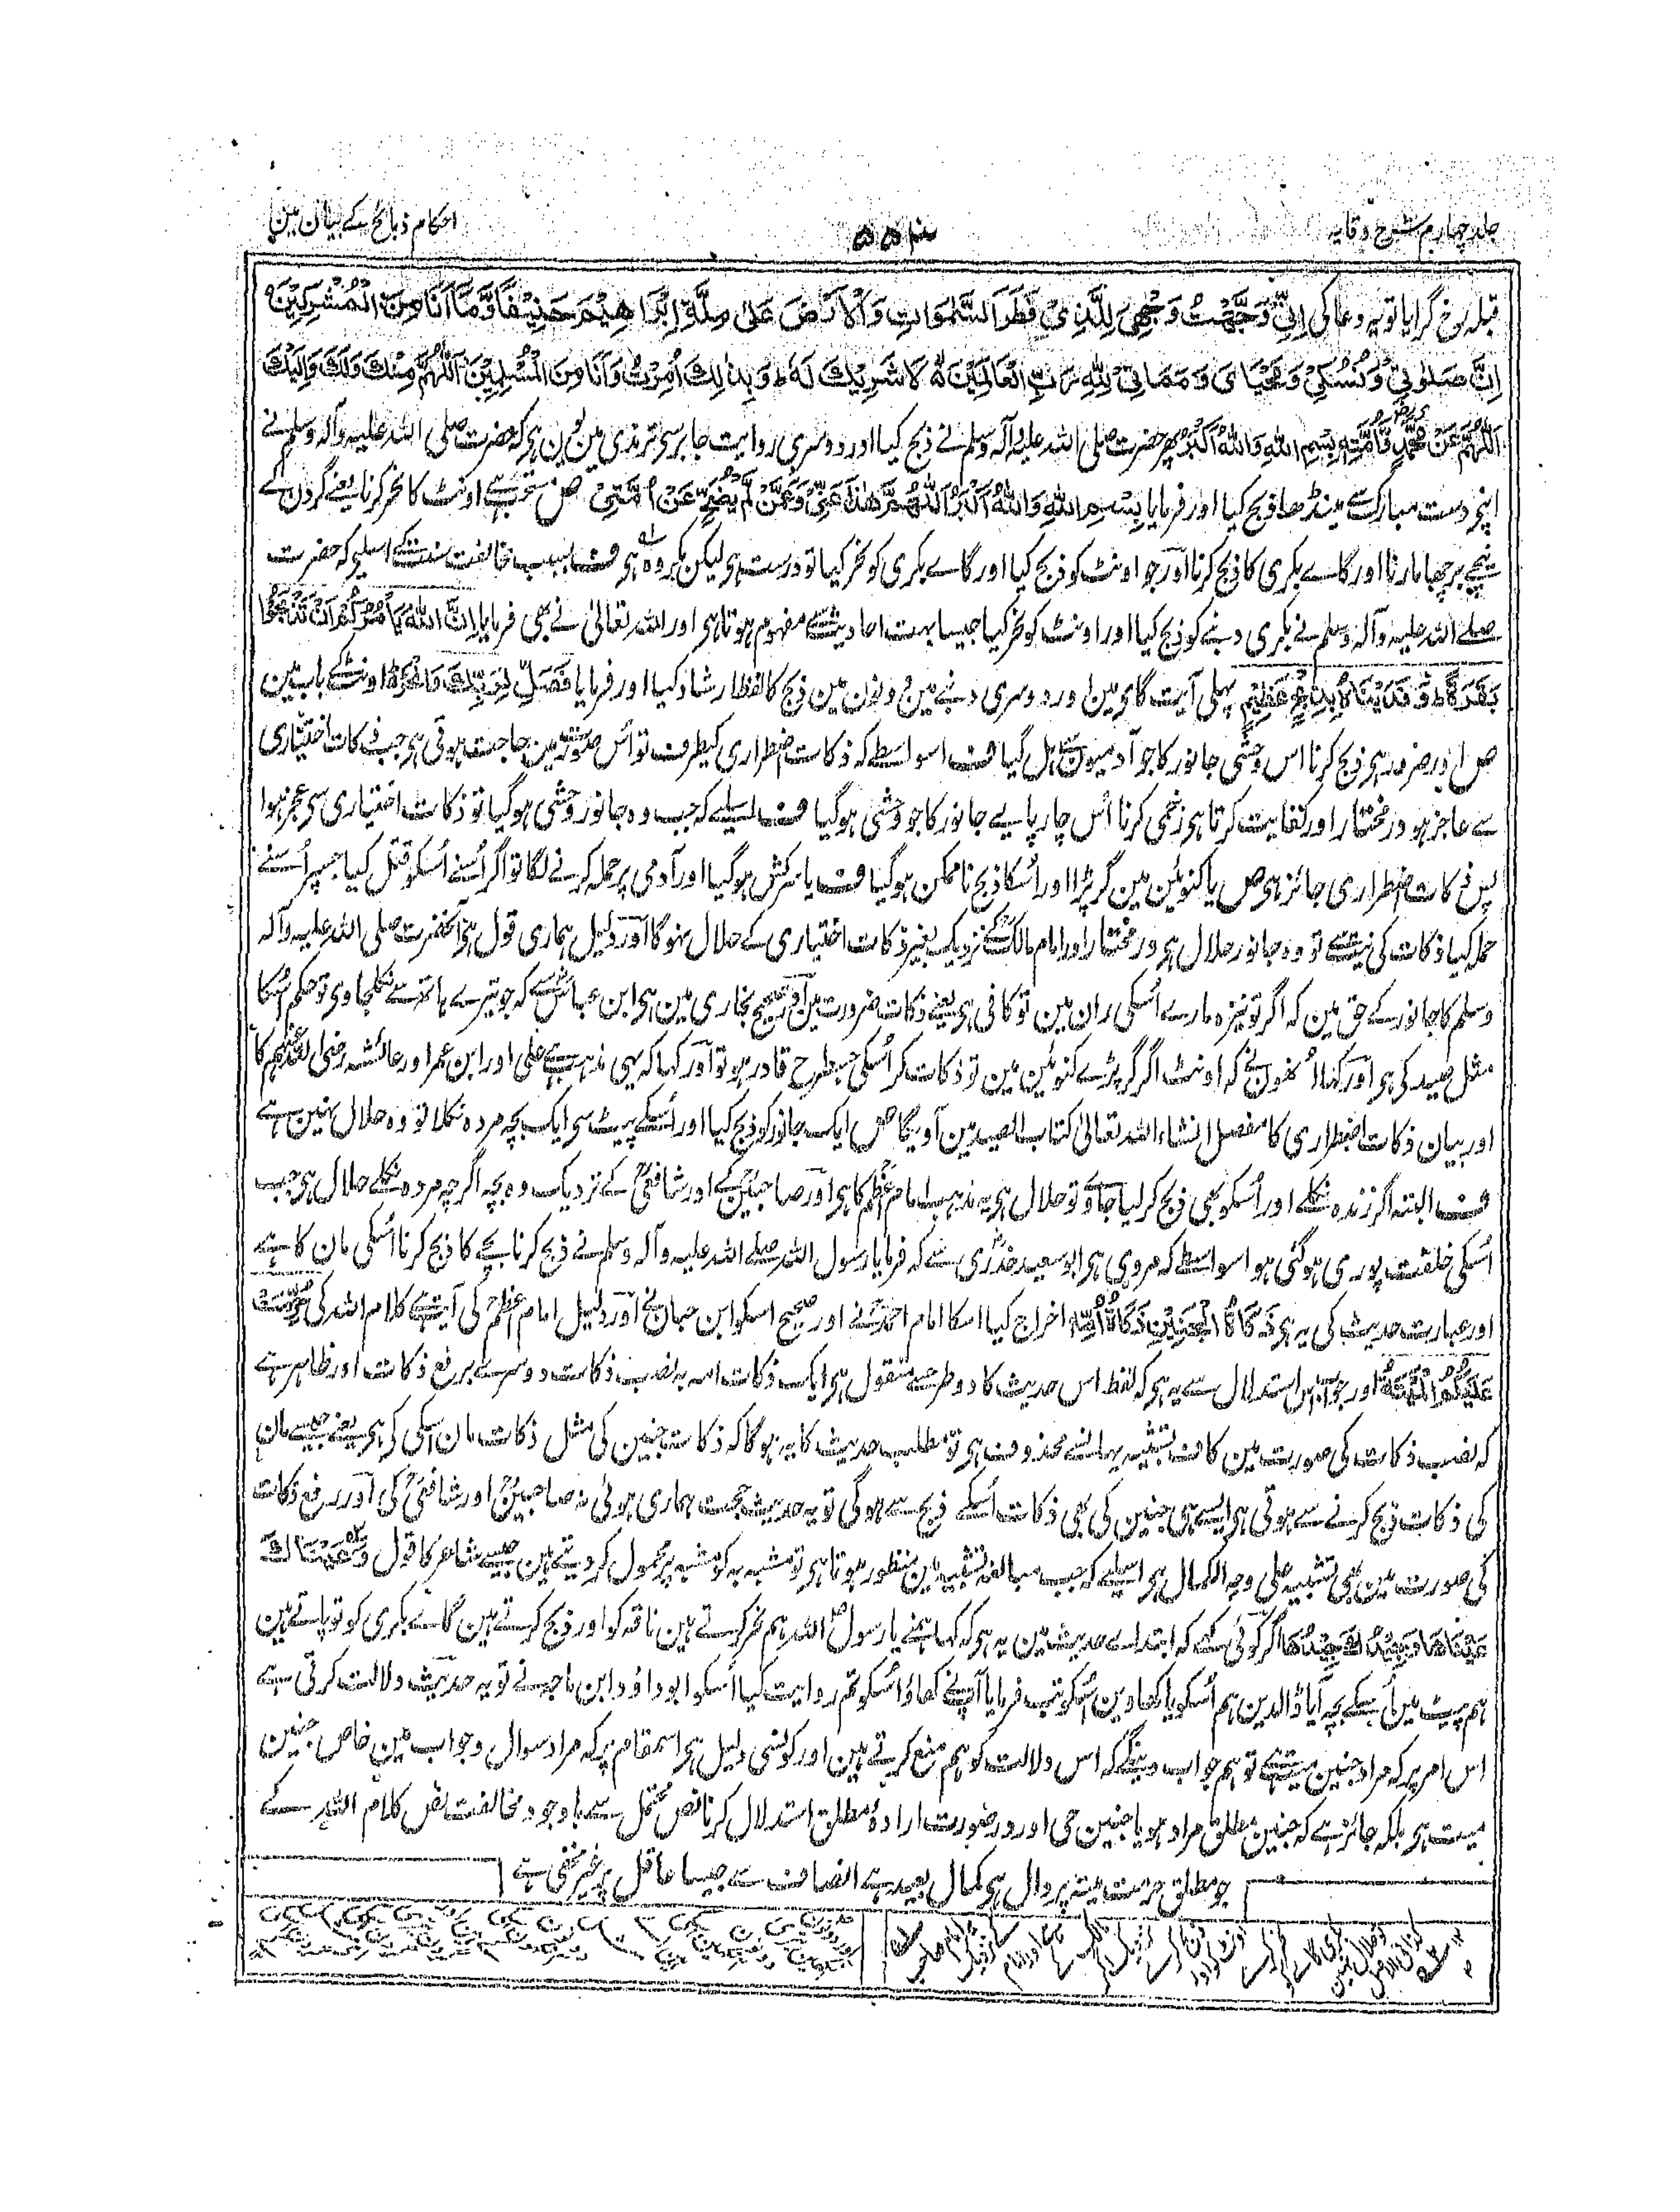 جلد چہارم شرح وقایہ
۵۵۴
احکام ذبائح کے بیان مین
قبلہ رخ گرایا تو یہ دعا کی اِنِّیْ وَجَّهْتُ وَجْهِیَ لِلَّذِیْ فَطَرَ السَّمٰوَاتِ وَالْاَرْضَ عَلٰی مِلَّةِ اِبْرَاهِیْمَ حَنِیْفًا وَّمَا اَنَا مِنَ الْمُشْرِکِیْنَ
اِنَّ صَلٰوتِیْ وَنُسُکِیْ وَمَحْیَایَ وَمَمَاتِیْ لِلّٰهِ رَبِّ الْعَالَمِیْنَ لَا شَرِیْكَ لَهٗ وَبِذٰلِكَ اُمِرْتُ وَاَنَا مِنَ الْمُسْلِمِیْنَ اَللّٰهُمَّ مِنْكَ وَلَكَ وَاِلَیْكَ
اَللّٰهُمَّ عَنْ مُحَمَّدٍ وَّاُمَّتِهٖ بِسْمِ اللّٰهِ وَاللّٰهُ اَکْبَرُ پھر حضرت صلی اللہ علیہ وآلہ وسلم نے ذبح کیا اور دوسری روایت جابر سی ترمذی مین یون ہی کہ حضرت صلی اللہ علیہ وآلہ وسلم نے
اپنے دست مبارک سے مینڈھا ذبح کیا اور فرمایا بِسْمِ اللّٰهِ وَاللّٰهُ اَکْبَرُ اَللّٰهُمَّ هٰذَا عَنِّیْ وَعَمَّنْ لَّمْ یُضَحِّ عَنْ اُمَّتِیْ ص مستحب ہے اونٹ کا نحر کرنا یعنے گردن کے
نیچے برچھا مارنا اور گاے بکری کا ذبح کرنا اور جو اونٹ کو ذبح کیا اور گاے بکری کو نحر کیا تو درست ہی لیکن مکروہ ہی ف بسبب مخالفت سنت کے اسلیے کہ حضرت
صلے اللہ علیہ وآلہ وسلم نے بکری دنبے کو ذبح کیا اور اونٹ کو نحر کیا جیسا بہت احادیث سے مفہوم ہوتا ہی اور اللہ تعالیٰ نے بھی فرمایا اِنَّ اللّٰهَ یَاْمُرُکُمْ اَنْ تَذْبَحُوْا
بَقَرَةً وَفَدَیْنَاهُ بِذِبْحٍ عَظِیْمٍ پہلی آیت گاے مین اور دوسری دنبے مین دونون مین ذبح کا لفظ ارشاد کیا اور فرمایا فَصَلِّ لِرَبِّكَ وَانْحَرْ اونٹ کے باب مین
ص اور ضرور ہی ذبح کرنا اس وحشی جانور کا جو آدمیون سے ہل گیا ف اسواسطے کہ ذکات اضطراری کیطرف تو اس صورت مین حاجت ہوتی ہی جب ذکات اختیاری
سے عاجز ہو درمختار اور کفایت کرتا ہی زخمی کرنا اس چارپایے جانور کا جو وحشی ہوگیا ف اسلیے کہ جب وہ جانور وحشی ہوگیا تو ذکات اختیاری سی عجز ہوا
پس ذکات اضطراری جائز ہی ص یا کنوئین مین گر پڑا اور اسکا ذبح ناممکن ہوگیا ف یا سرکش ہوگیا اور آدمی پر حملہ کرنے لگا تو اگر اُسنے اُسکو قتل کیا جسپر اُسنے
حملہ کیا ذکات کی نیت سے تو وہ جانور حلال ہی درمختار اور امام مالک کے نزدیک بغیر ذکات اختیاری کے حلال نہوگا اور دلیل ہماری قول ہی آنحضرت صلی اللہ علیہ وآلہ
وسلم کا جانور کے حق مین کہ اگر تو نیزہ مارے اُسکی ران مین تو کافی ہی یعنے ذکات ضرورت مین اور صحیح بخاری مین ہی ابن عباس سے کہ جو تیرے ہاتھ سے نکلجاوی تو حکم اُسکا
مثل صید کی ہی اور کہا اُنھون نے کہ اونٹ اگر گر پڑے کنوئین مین تو ذکات کر اُسکی جسطرح قادر ہو تو اور کہا کہ یہی مذہب ہے علی اور ابن عمر اور عائشہ رضی اللہ عنہم کا
اور بیان ذکات اضطراری کا مفصل انشاء اللہ تعالیٰ کتاب الصید مین آویگا ص ایک جانور کو ذبح کیا اور اُسکے پیٹ سی ایک بچہ مردہ نکلا تو وہ حلال نہین ہے
ف البتہ اگر زندہ نکلے اور اُسکو بھی ذبح کر لیا جاوے تو حلال ہی یہ مذہب امام اعظم کا ہی اور صاحبین کے اور شافعی کے نزدیک وہ بچہ اگرچہ مردہ نکلے حلال ہی جب
اُسکی خلقت پوری ہوگئی ہو اسواسطے کہ مروی ہی ابوسعید خدری سے کہ فرمایا رسول اللہ صلے اللہ علیہ وآلہ وسلم نے ذبح کرنا بچے کا ذبح کرنا اُسکی مان کا ہے
اور عبارت حدیث کی یہ ہی ذَکَاةُ الْجَنِیْنِ ذَکَاةُ اُمِّهٖ اخراج کیا اسکا امام احمد نے اور صحیح اسکو ابن حبان نے اور دلیل امام اعظم کی آیت ہے کلام اللہ کی حُرِّمَتْ
عَلَیْکُمُ الْمَیْتَةُ اور جواب اس استدلال سے یہ ہی کہ لفظ اس حدیث کا دو طرح سے منقول ہی ایک ذکات امہ بہ نصب ذکات دوسرے برفع ذکات اور ظاہر ہے
کہ نصب ذکات کی صورت مین کاف تشبیہ یہان سے محذوف ہی تو مطلب حدیث کا یہ ہوگا کہ ذکات جنین کی مثل ذکات مان اسکی کی ہی یعنے جیسے مان
کی ذکات ذبح کرنے سے ہوتی ہی ایسے ہی جنین کی بھی ذکات اُسکے ذبح سے ہوگی تو یہ حدیث حجت ہماری ہوئی نہ صاحبین اور شافعی کی اور رفع ذکات
کی صورت مین بھی تشبیہ علی وجہ الکمال ہی اسلیے کہ جب مبالغہ تشبیہ مین منظور ہوتا ہی تو مشبہ بہ کو مشبہ پر محمول کر دیتے ہین جیسے شاعر کا قول وَعَیْنَاكَ
عَیْنَاهَا وَجِیْدُكَ جِیْدُهَا اگر کوئی کہے کہ ابتداے حدیث مین یہ ہی کہ کہا ہمنے یا رسول اللہ ہم نحر کرتے ہین ناقہ کو اور ذبح کرتے ہین گاے بکری کو تو پاتے ہین
ہم پیٹ مین اُسکے بچہ آیا ڈالدین ہم اُسکو یا کھاوین اُسکو تب فرمایا آپنے کھاؤ اُسکو تم روایت کیا اُسکو ابوداؤد ابن ماجہ نے تو یہ حدیث دلالت کرتی ہے
اس امر پر کہ مراد جنین میت ہے تو ہم جواب دینگے کہ اس دلالت کو ہم منع کرتے ہین اور کونسی دلیل ہی اسمقام پر کہ مراد سوال وجواب مین خاص جنین
میت ہی بلکہ جائز ہے کہ جنین مطلق مراد ہو یا جنین حی اور در صورت ارادۂ مطلق استدلال کرنا نص محتمل سے باوجود مخالفت نص کلام اللہ کے
جو مطلق حرمت میتہ پر دال ہی کمال بعید ہے انصاف سے جیسا عاقل پر غیر مخفی ہے